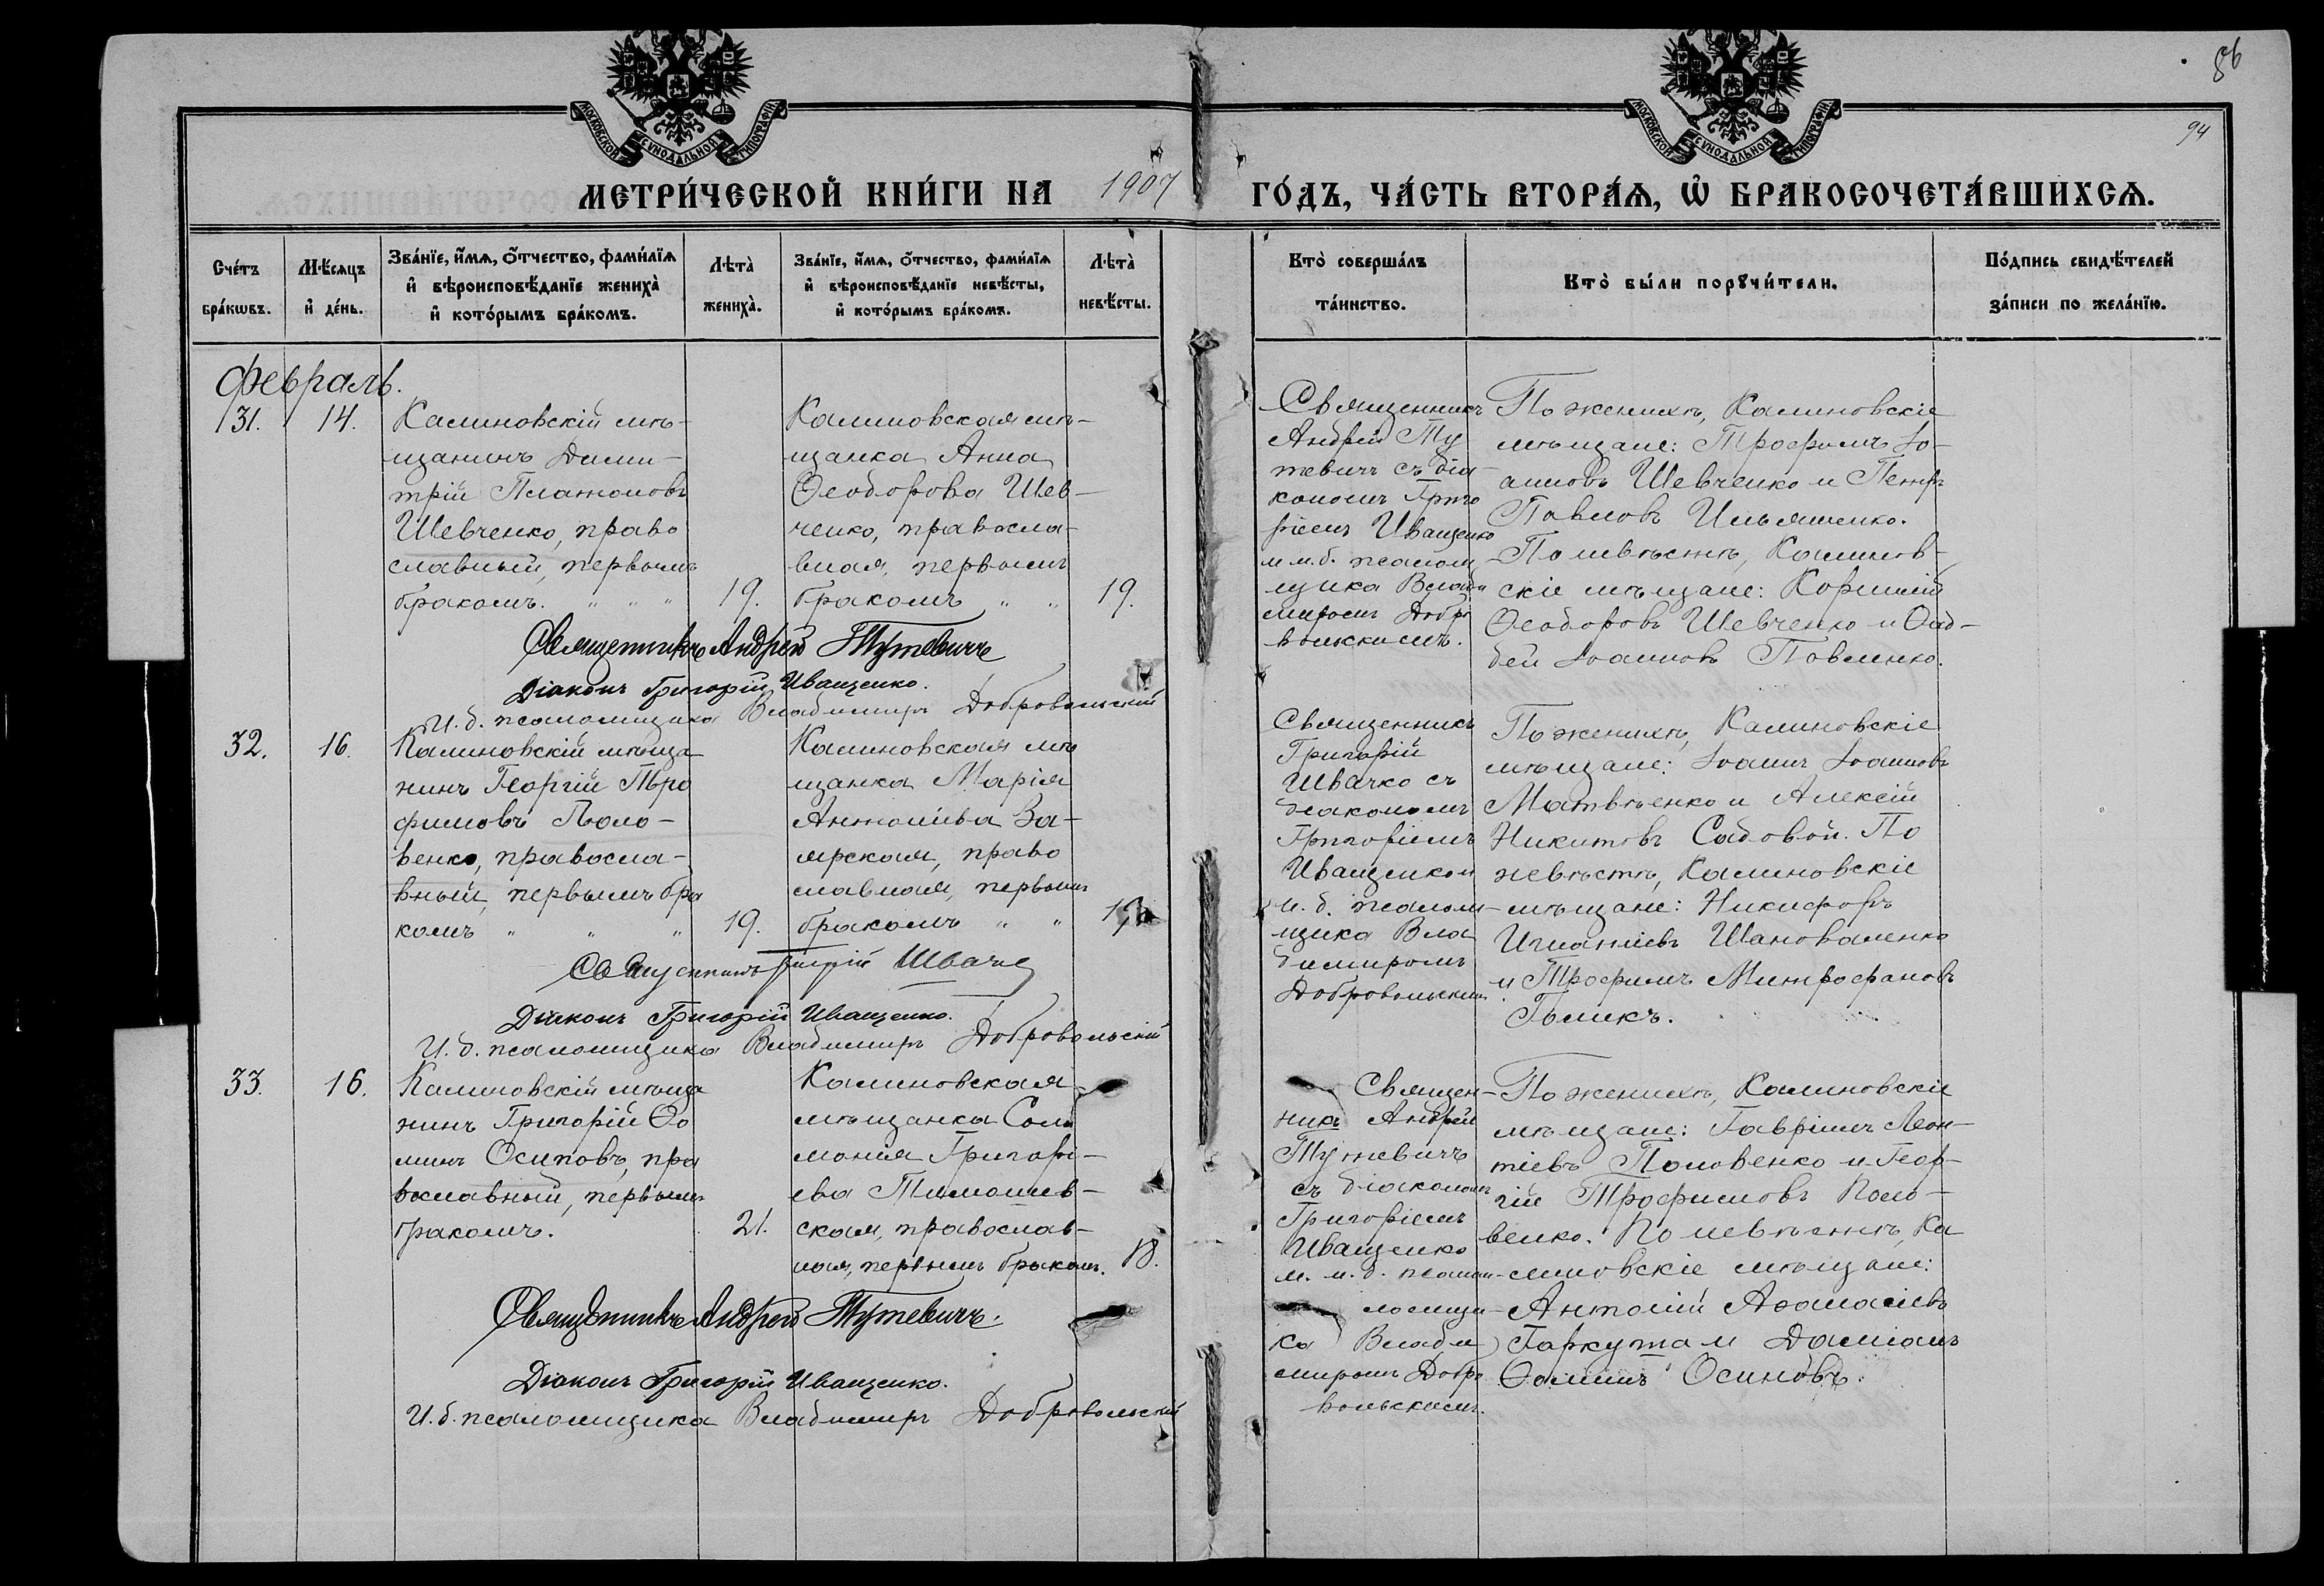 86
94
МОСКОВСКОЙ СѴНОДАЛЬНОЙ ТИПОГРАФІИ
МОСКОВСКОЙ СѴНОДАЛЬНОЙ ТИПОГРАФІИ
МЕТРИ́ЧЕСКОЙ КНИ́ГИ НА 1907 ГО́ДЪ, ЧА́СТЬ ВТОРА́Ѧ, Ѡ҆ БРАКОСОЧЕТА́ВШИХСѦ.
Сче́тъ
бра́кѡвъ.
Мѣ́сяцъ
и҆ де́нь.
Зва́нїе, и҆́мѧ, ѻ҆́тчество, фами́лїѧ
и҆ вѣроисповѣ́данїе жениха̀
и҆ кото́рымъ бра́комъ.
Лѣта̀
жениха̀.
Зва́нїе, и҆́мѧ, ѻ҆́тчество, фами́лїѧ
и҆ вѣроисповѣ́данїе невѣ́сты,
и҆ кото́рымъ бра́комъ.
Лѣта̀
невѣ́сты.
Кто̀ соверша́лъ
та́инство.
Кто̀ бы́ли порꙋчи́тели.
По́дпись свидѣ́телей
за́писи по жела́нїю.
Февраль.
31.
14.
Калиновскій мѣ-
щанинъ Дими-
трій Платоновъ
Шевченко, право
славный, первымъ
бракомъ. " " "
19.
Калиновская мѣ-
щанка Анна
Ѳеодорова Шев-
ченко, правосла-
вная, первымъ
бракомъ " "
19.
Священникъ
Андрей Ту
тевичъ съ діа-
кономъ Григо
ріемъ Иващенко
и и.д. псалом
щика Влади
миромъ Добро
вольскимъ.
По женихѣ, Калиновскіе
мѣщане: Трофимъ Іо-
анновъ Шевченко и Петръ
Павловъ Ильяшенко.
По невѣстѣ, Калинов-
скіе мѣщане: Корнилій
Ѳеодоровъ Шевченко и Ѳад-
дей Іоанновъ Павленко.
Священникъ Андрей Тутевичъ
Діаконъ Григорій Иващенко.
И.д. псаломщика Владиміръ Добровольскій
32.
16.
Калиновскій мѣща
нинъ Георгій Тро
фимовъ Поло-
венко, правосла-
вный, первымъ бра
комъ " " "
19.
Калиновская мѣ
щанка Марія
Антоніева За-
ярская, право
славная, первымъ
бракомъ " "
Священникъ
Григорій
Швачко съ
діакономъ
Григоріемъ
Иващенком
и.д. псалом-
щика Вла
димиромъ
Добровольскимъ.
По женихѣ, Калиновскіе
мѣщане: Іоаннъ Іоанновъ
Матвѣенко и Алексій
Никитовъ Садовой. По
невѣстѣ, Калиновскіе
мѣщане: Никифоръ
Игнатіевъ Шаповаленко
и Трофимъ Митрофановъ
Гымкъ.
Священникъ Григорій Швачко
Діаконъ Григорій Иващенко.
И.д. псаломщика Владиміръ Добровольскій
33.
16.
Калиновскій мѣща
нинъ Григорій Ѳо
минъ Осиповъ, пра
вославный, первымъ
бракомъ.
21.
Калиновская
мѣщанка Соло
монія Григорі-
ева Тимошев-
ская, православ-
ная, первымъ бракомъ.
18.
Священ-
никъ Андрей
Тутевичъ
съ діакономъ
Григоріемъ
Иващенко
и. и.д. псалом-
ломщи-
ка Влади
миромъ Добро
вольскимъ.
По женихѣ, Калиновскіе
мѣщане: Гавріилъ Леон-
тіевъ Половенко и Геор-
гій Трофимовъ Поло-
венко. По невѣстѣ, Ка
линовскіе мѣщане:
Антоній Аѳанасіевъ
Гаркута и Даміанъ
Ѳоминъ Осиповъ.
Священникъ Андрей Тутевичъ.
Діаконъ Григорій Иващенко.
И.д. псаломщика Владиміръ Добровольскій